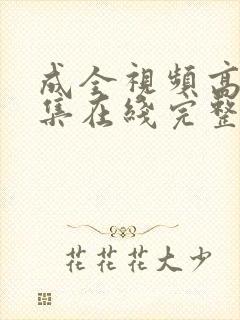 成全視頻高
集在綫完整
花花花大少